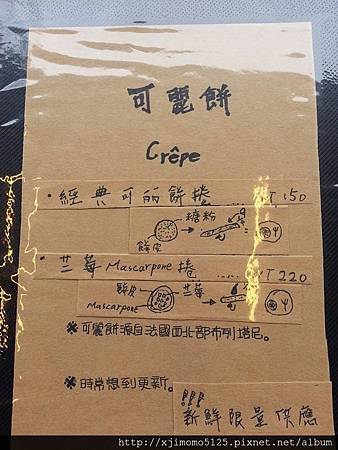 可麗餅
Crêpe
・經典可麗餅捲 NT 150
糖粉
餅皮
・芒莓 Mascarpone 捲 ...... NT 220
餅皮 芒莓
Mascarpone
※可麗餅源自法國西北部布列塔尼。
※時常想到更新。
!!!
新鮮限量供應
http://xjimomo5125.pixnet.net/album